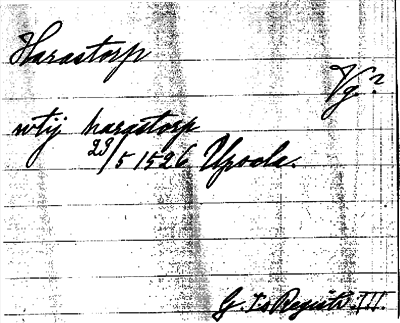 Harastorp
Vg?
wtij harastorp
23/5 1526 Upsala.
G. I:s Registr. III.